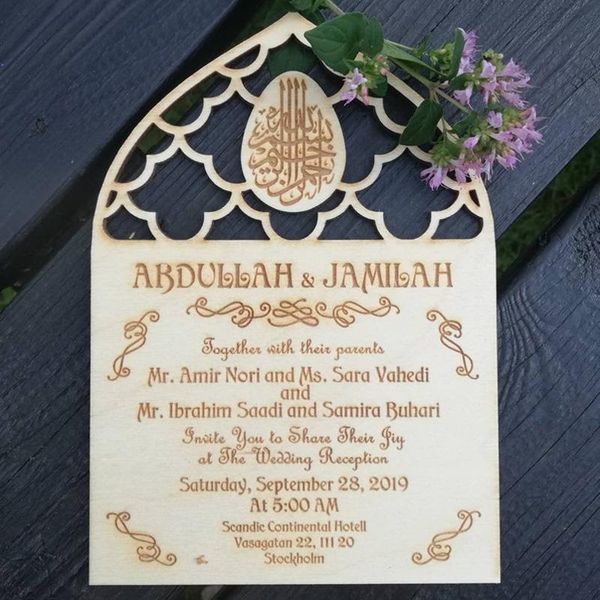 بسم الله الرحمن الرحيم
ABDULLAH & JAMILAH
Together with their parents
Mr. Amir Nori and Ms. Sara Vahedi
and
Mr. Ibrahim Saadi and Samira Buhari
Invite You to Share Their Jiy
at The Wedding Reception
Saturday, September 28, 2019
At 5:00 AM
Scandic Continental Hotell
Vasagatan 22, 111 20
Stockholm